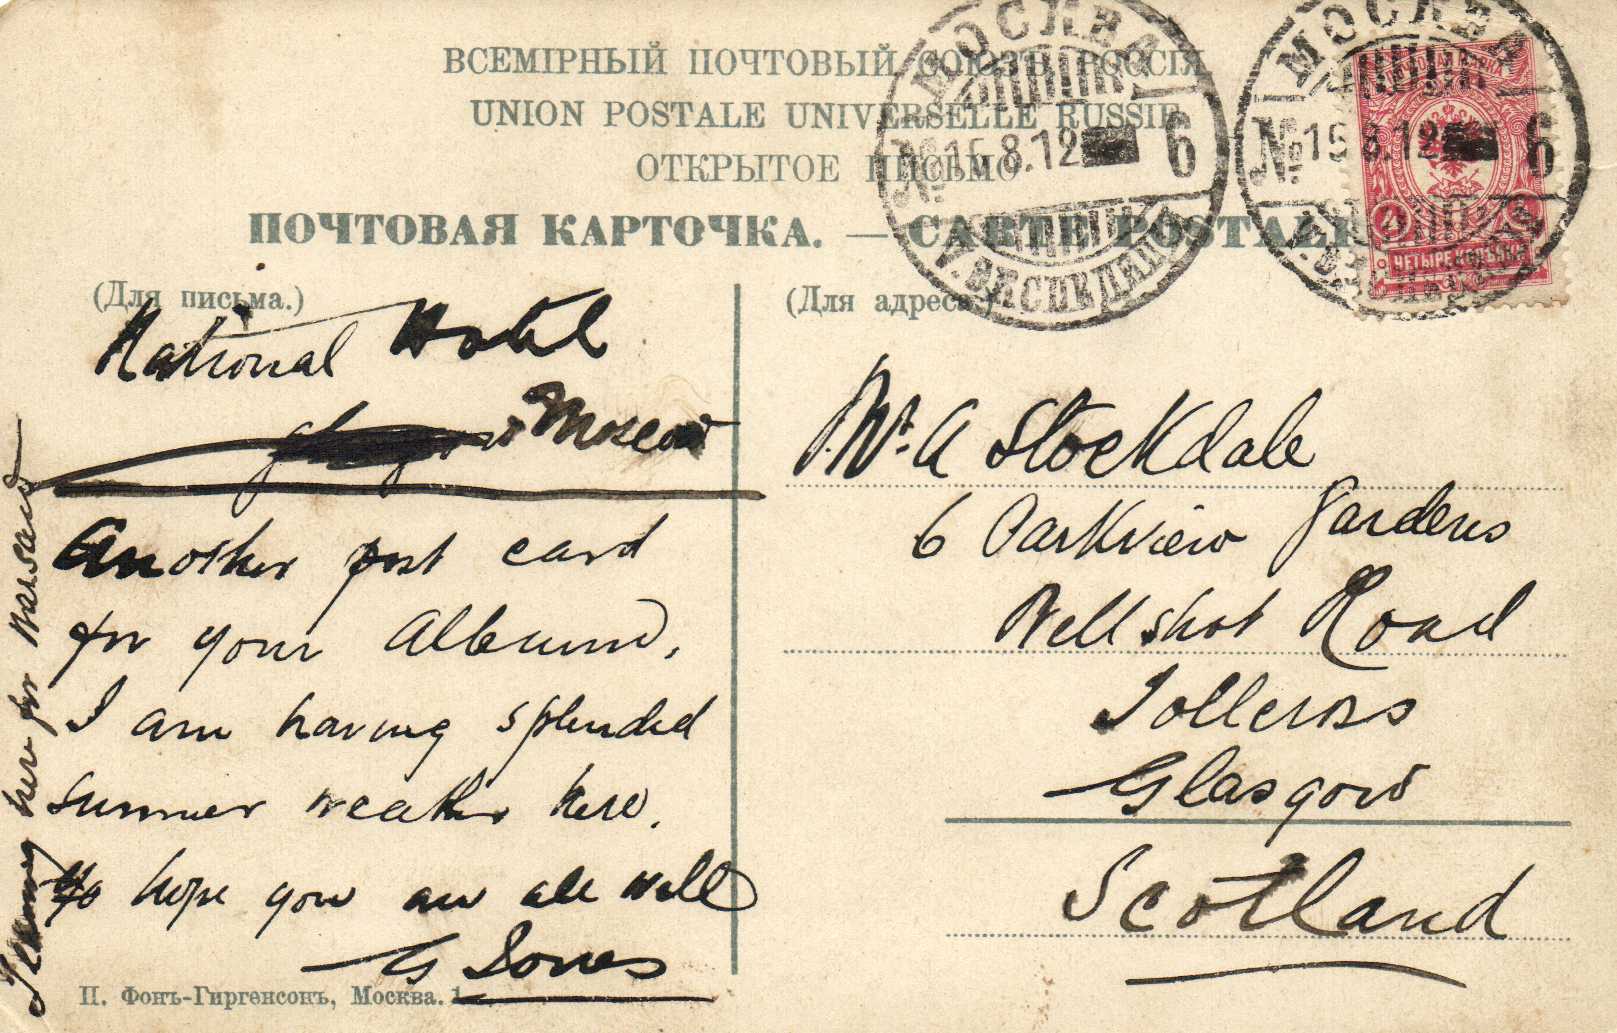 ВСЕМІРНЫЙ ПОЧТОВЫЙ СОЮЗЪ РОССІЯ
UNION POSTALE UNIVERSELLE RUSSIE
ОТКРЫТОЕ ПИСЬМО
ПОЧТОВАЯ КАРТОЧКА. — CARTE POSTALE
МОСКВА
№ 15.8.12 6
МОСКВА
№ 15 8.12 6
4
ЧЕТЫРЕ КОПѢЙКИ
(Для письма.)
National Hotel
Moscow
Another post card
for your Album,
I am having splended
summer weather here.
hope you are all well
G Jones
Leaving here for Warsaw
(Для адреса.)
Mr. A Stockdale
6 Parkview Gardens
Wellshot Road
Tollcross
Glasgow
Scotland
П. Фонъ-Гиргенсонъ, Москва.